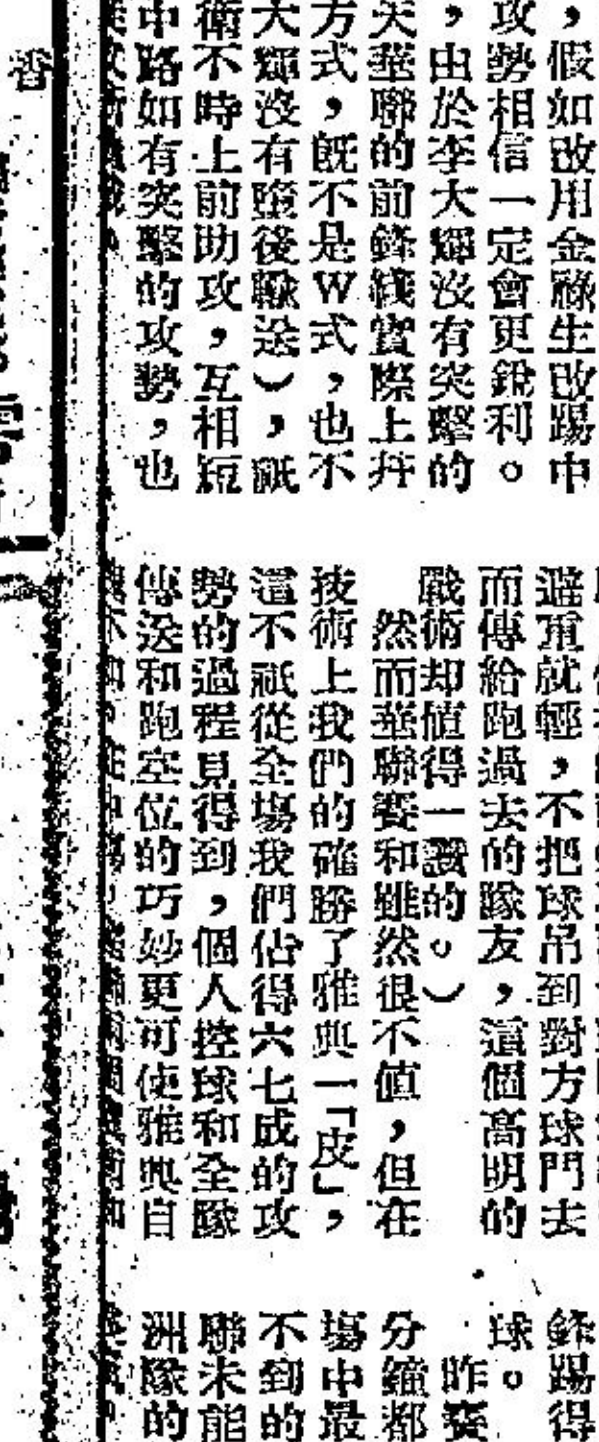 ，假如改用金祿生改踢中
攻勢相信一定會更銳利。
，由於李大輝沒有突擊的
天華聯的前鋒綫實際上幷
方式，旣不是W式，也不
大輝沒有墮後輸送），祇
衛不時上前助攻，互相短
中路如有突擊的攻勢，也
避重就輕，不把球吊到對方球門去
而傳給跑過去的隊友，這個高明的
戰術却値得一讚的。）
然而華聯賽和雖然很不値，但在
技術上我們的確勝了雅典一「皮」，
這不祇從全塲我們佔得六七成的攻
勢的過程見得到，個人控球和全隊
傳送和跑空位的巧妙更可使雅典自
鋒踢得
球。
昨賽
分鐘都
塲中最
不到的
聯未能
洲隊的
香